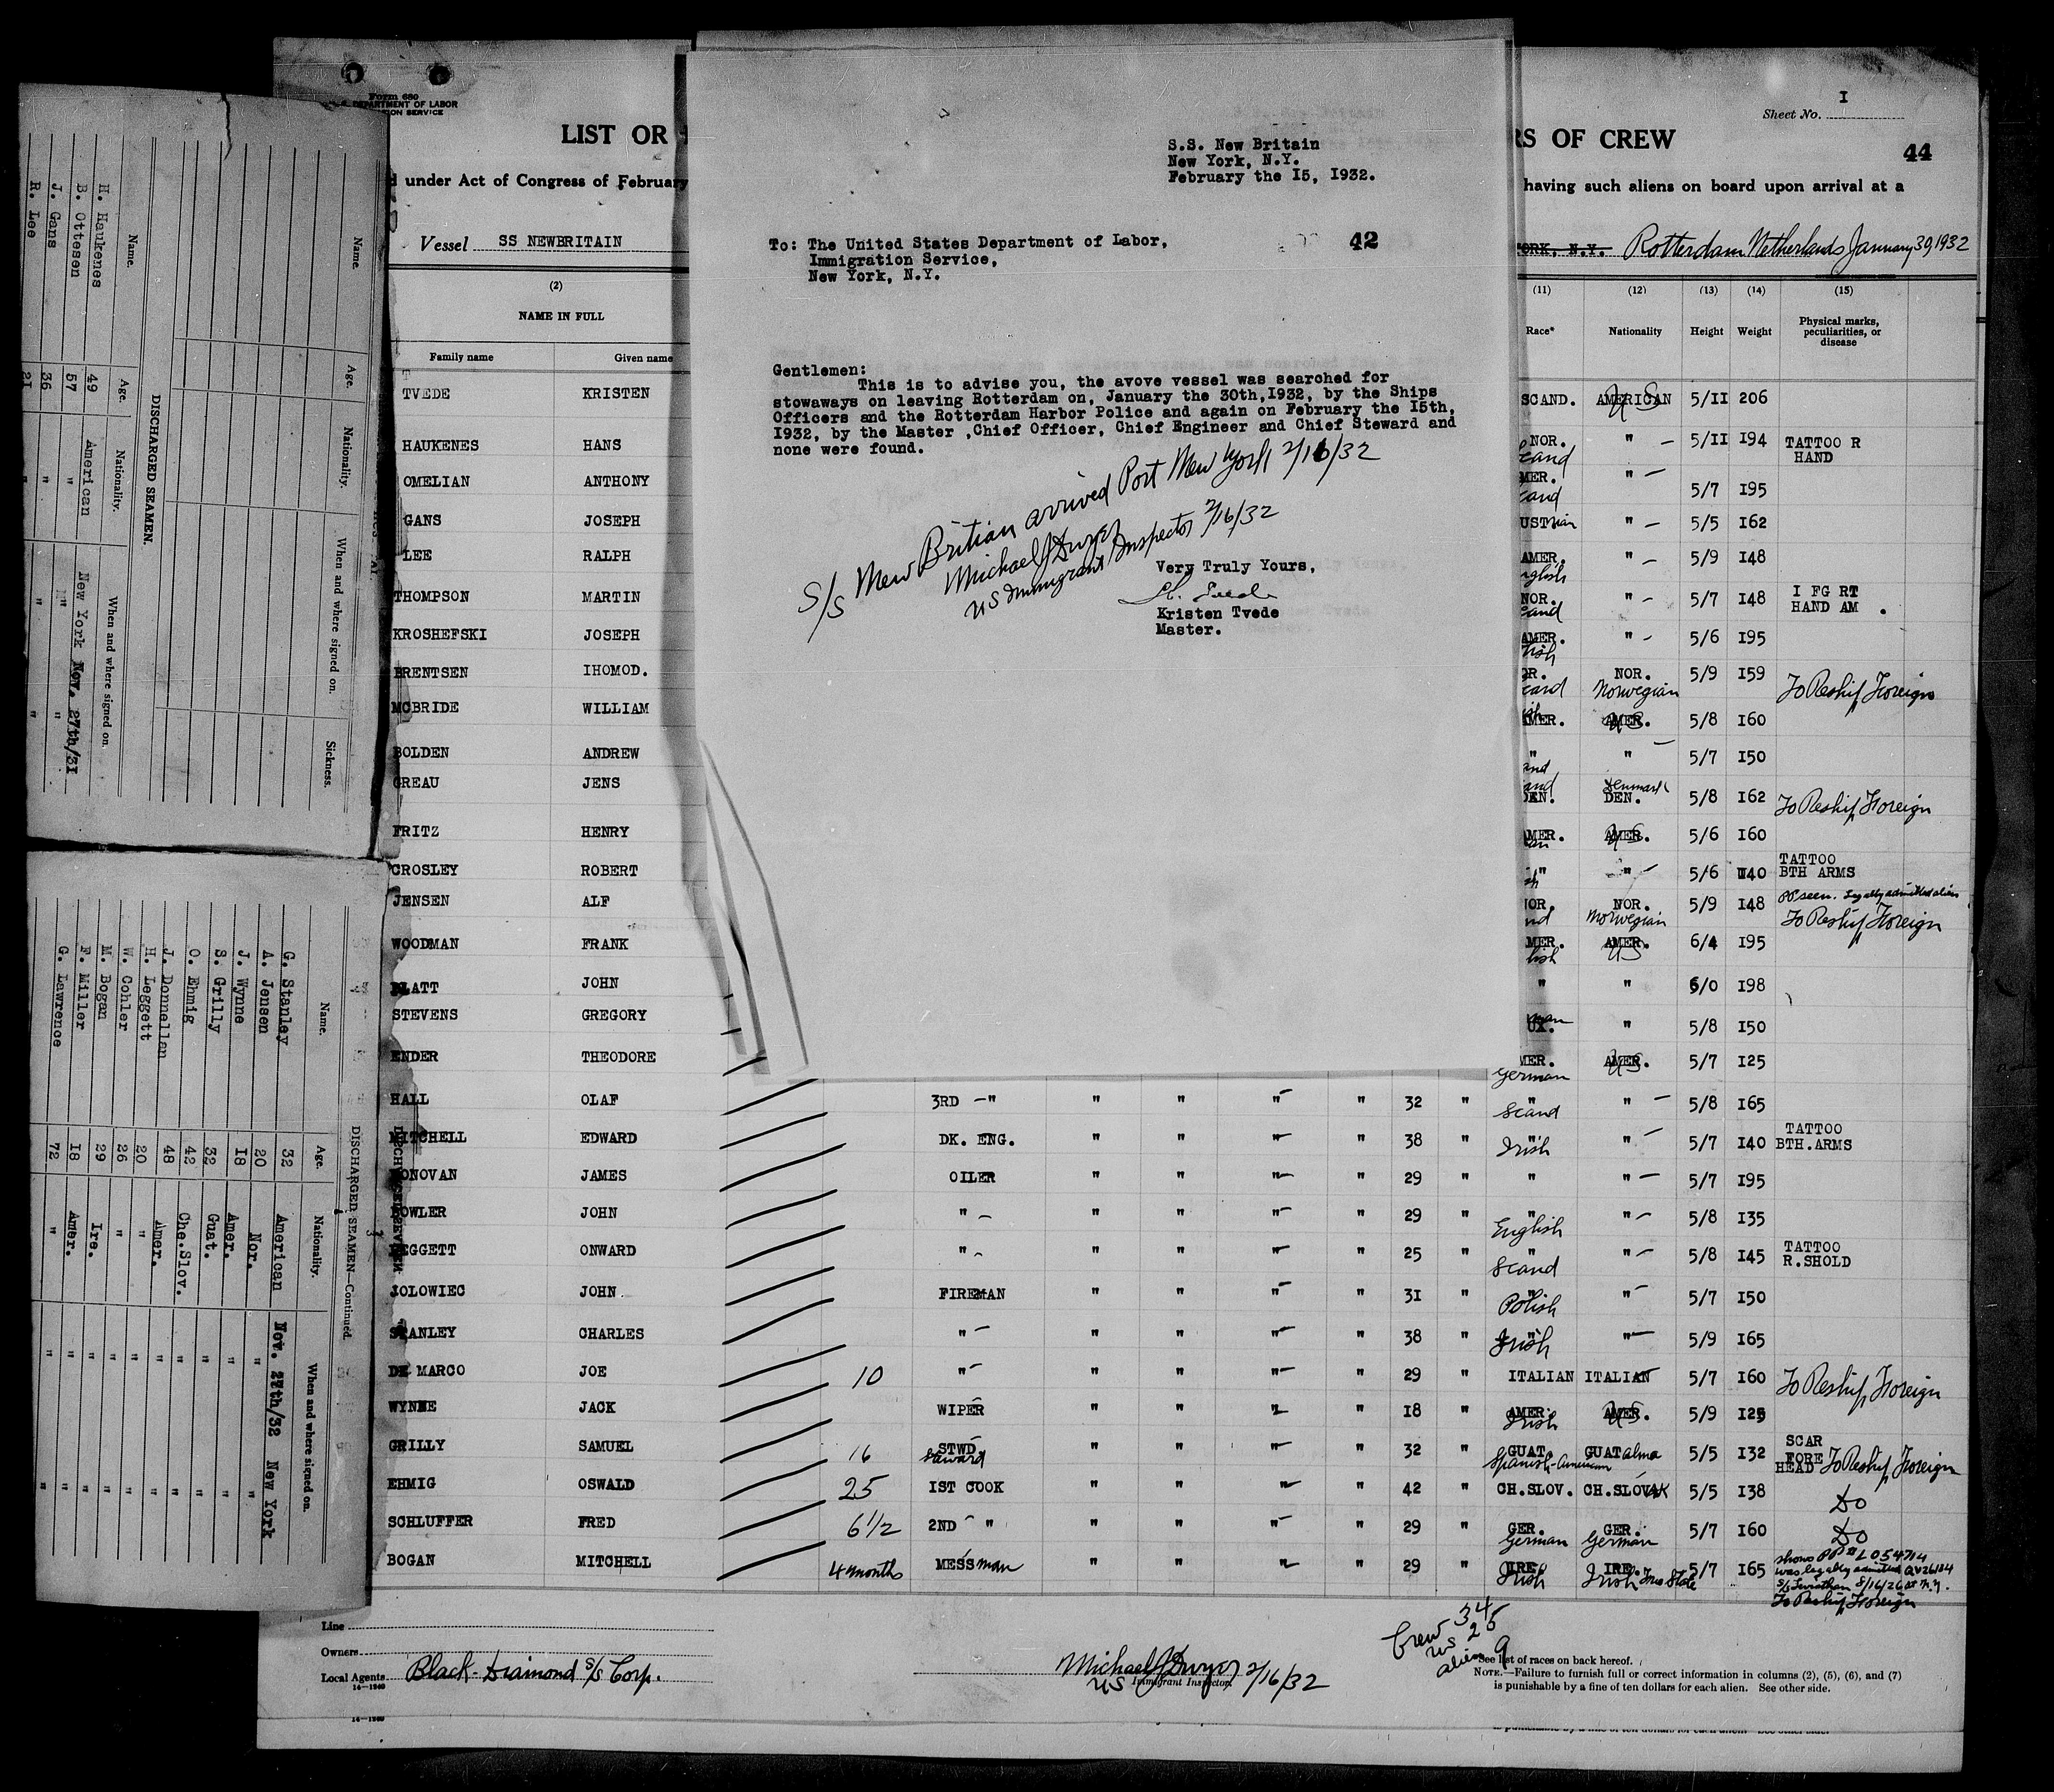 Form 680
DEPARTMENT OF LABOR
LIST OR
RS OF CREW
Sheet No. I
44
under Act of Congress of February
having such aliens on board upon arrival at a
Vessel SS NEWBRITAIN
ORK, N.Y. Rotterdam Netherlands January 30, 1932
S.S. New Britain
New York, N.Y.
February the I5, I932.
42
To: The United States Department of Labor,
Immigration Service,
New York, N.Y.
Gentlemen:
This is to advise you, the avove vessel was searched for
stowaways on leaving Rotterdam on, January the 30th,I932, by the Ships
Officers and the Rotterdam Harbor Police and again on February the I5th,
I932, by the Master ,Chief Officer, Chief Engineer and Chief Steward and
none were found.
S/S New Britian arrived Port New York 2/16/32
Michael J Dwyer
US Immigrant Inspector 2/16/32
Very Truly Yours,
Kristen Tvede
Master.
(2) (11) (12) (13) (14) (15)
NAME IN FULL
Race* Nationality Height Weight Physical marks, peculiarities, or disease
Family name Given name
TVEDE KRISTEN SCAND. AMERICAN US 5/II 206
HAUKENES HANS NOR. " 5/II I94 TATTOO R HAND
OMELIAN ANTHONY " 5/7 I95
GANS JOSEPH " 5/5 I62
LEE RALPH AMER. " 5/9 I48
THOMPSON MARTIN NOR. " 5/7 I48 I FG RT HAND AM .
KROSHEFSKI JOSEPH AMER. " 5/6 I95
BRENTSEN IHOMOD. NOR. Norwegian 5/9 I59 To Reship Foreign
MCBRIDE WILLIAM AMER. US 5/8 I60
BOLDEN ANDREW " " 5/7 I50
GREAU JENS DEN. Denmark 5/8 I62 To Reship Foreign
FRITZ HENRY AMER. US 5/6 I60
CROSLEY ROBERT " " 5/6 I40 TATTOO BTH ARMS
JENSEN ALF NOR. Norwegian 5/9 I48 PP seen. Legally admitted alien To Reship Foreign
WOODMAN FRANK AMER. US 6/4 I95
PLATT JOHN " " 6/0 I98
STEVENS GREGORY " 5/8 I50
ENDER THEODORE German AMER. US 5/7 I25
HALL OLAF 3RD " " " " " 32 " " Scand " 5/8 I65
MITCHELL EDWARD DK. ENG. " " " " 38 " " Irish " 5/7 I40 TATTOO BTH.ARMS
DONOVAN JAMES OILER " " " " 29 " " " 5/7 I95
FOWLER JOHN " " " " " 29 " " English " 5/8 I35
LEGGETT ONWARD " " " " " 25 " " Scand " 5/8 I45 TATTOO R.SHOLD
JOLOWIEC JOHN FIREMAN " " " " 3I " " Polish " 5/7 I50
STANLEY CHARLES " " " " " 38 " " Irish " 5/9 I65
DE MARCO JOE 10 " " " " " 29 " ITALIAN ITALIAN 5/7 I60 To Reship Foreign
WYNNE JACK WIPER " " " " I8 " AMER. Irish AMER. US 5/9 I25
GRILLY SAMUEL 16 STWD Steward " " " " 32 " GUAT. Spanish-American GUATalma 5/5 I32 SCAR FORE HEAD To Reship Foreign
EHMIG OSWALD 25 IST COOK " " " " 42 " CH.SLOV. CH.SLOVAK 5/5 I38 Do
SCHLUFFER FRED 6 1/2 2ND " " " " " 29 " GER. German GER. German 5/7 I60 Do
BOGAN MITCHELL 4 months MESSman " " " " 29 " IRE. Irish IRE. Irish Free State 5/7 I65 shows PP # L054714
was legally admitted
S/S Leviathan 8/16/26 at N.Y.
To Reship Foreign
Line
Owners
Local Agents Black Diamond S/S Corp.
14-1240
Michael J Dwyer 2/16/32
US Immigrant Inspector
Crew 34
US 25
alien 9
See list of races on back hereof.
NOTE.—Failure to furnish full or correct information in columns (2), (5), (6), and (7)
is punishable by a fine of ten dollars for each alien. See other side.
Name. Age. Nationality. When and where signed on. Sickness.
DISCHARGED SEAMEN.
Name. Age. Nationality. When and where signed on.
H. Haukenes 49 American New York Nov. 27th/3I
B. Ottesen 57 " " "
J. Gans 36 " " "
R. Lee 2I " "
DISCHARGED SEAMEN—Continued.
Name. Age. Nationality. When and where signed on.
G. Stanley 32 American Nov. 27th/32 New York
A. Jensen 20 Nor. " "
J. Wynne I8 Amer. " "
S. Grilly 32 Guat. " "
O. Ehmig 42 Che.Slov. " "
J. Donnellan 48 Amer. " "
H. Leggett 20 " " "
W. Cohler 26 " " "
M. Bogan 29 Ire. " "
F. Miller I8 Amer. " "
G. Lawrence 72 " " "